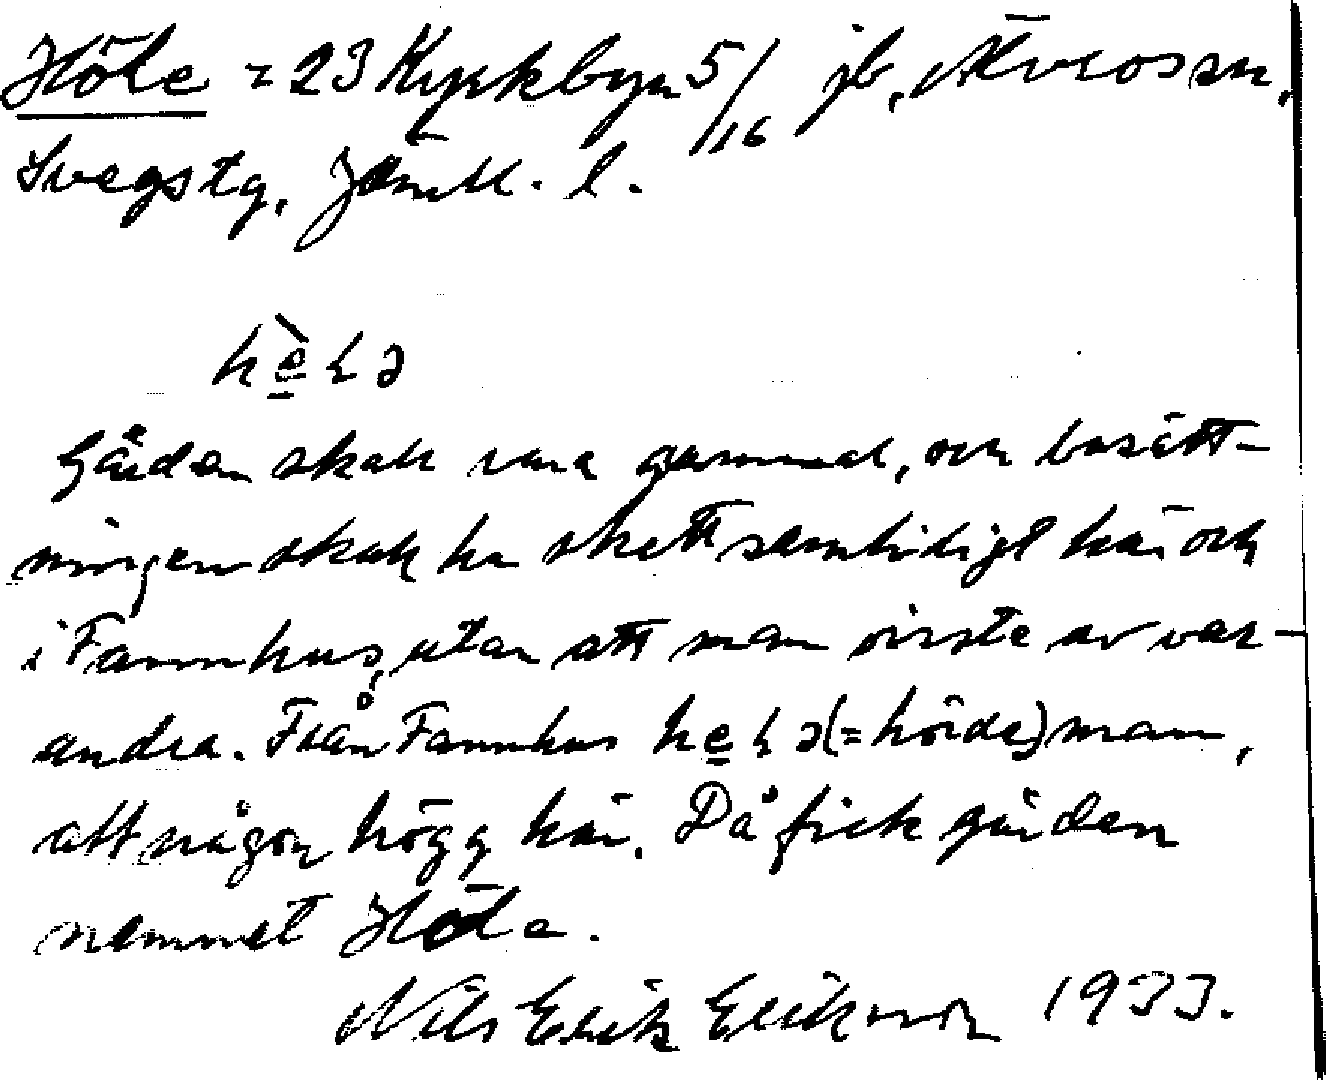 Höle = 23 Kyrkbyn 5/16 jb, Älvros sn,
Svegs tg, Jämtl. l.
hè̱ɽə
Gården skall vara gammal, och bosätt-
ningen skall ha skett samtidigt här och
i Fannhus, utan att man visste av var-
andra. Från Fannhus he̱ɽə (= hörde) man,
att någon högg här. Då fick gården
namnet Höle.
Nils Erik Eriksson 1933.